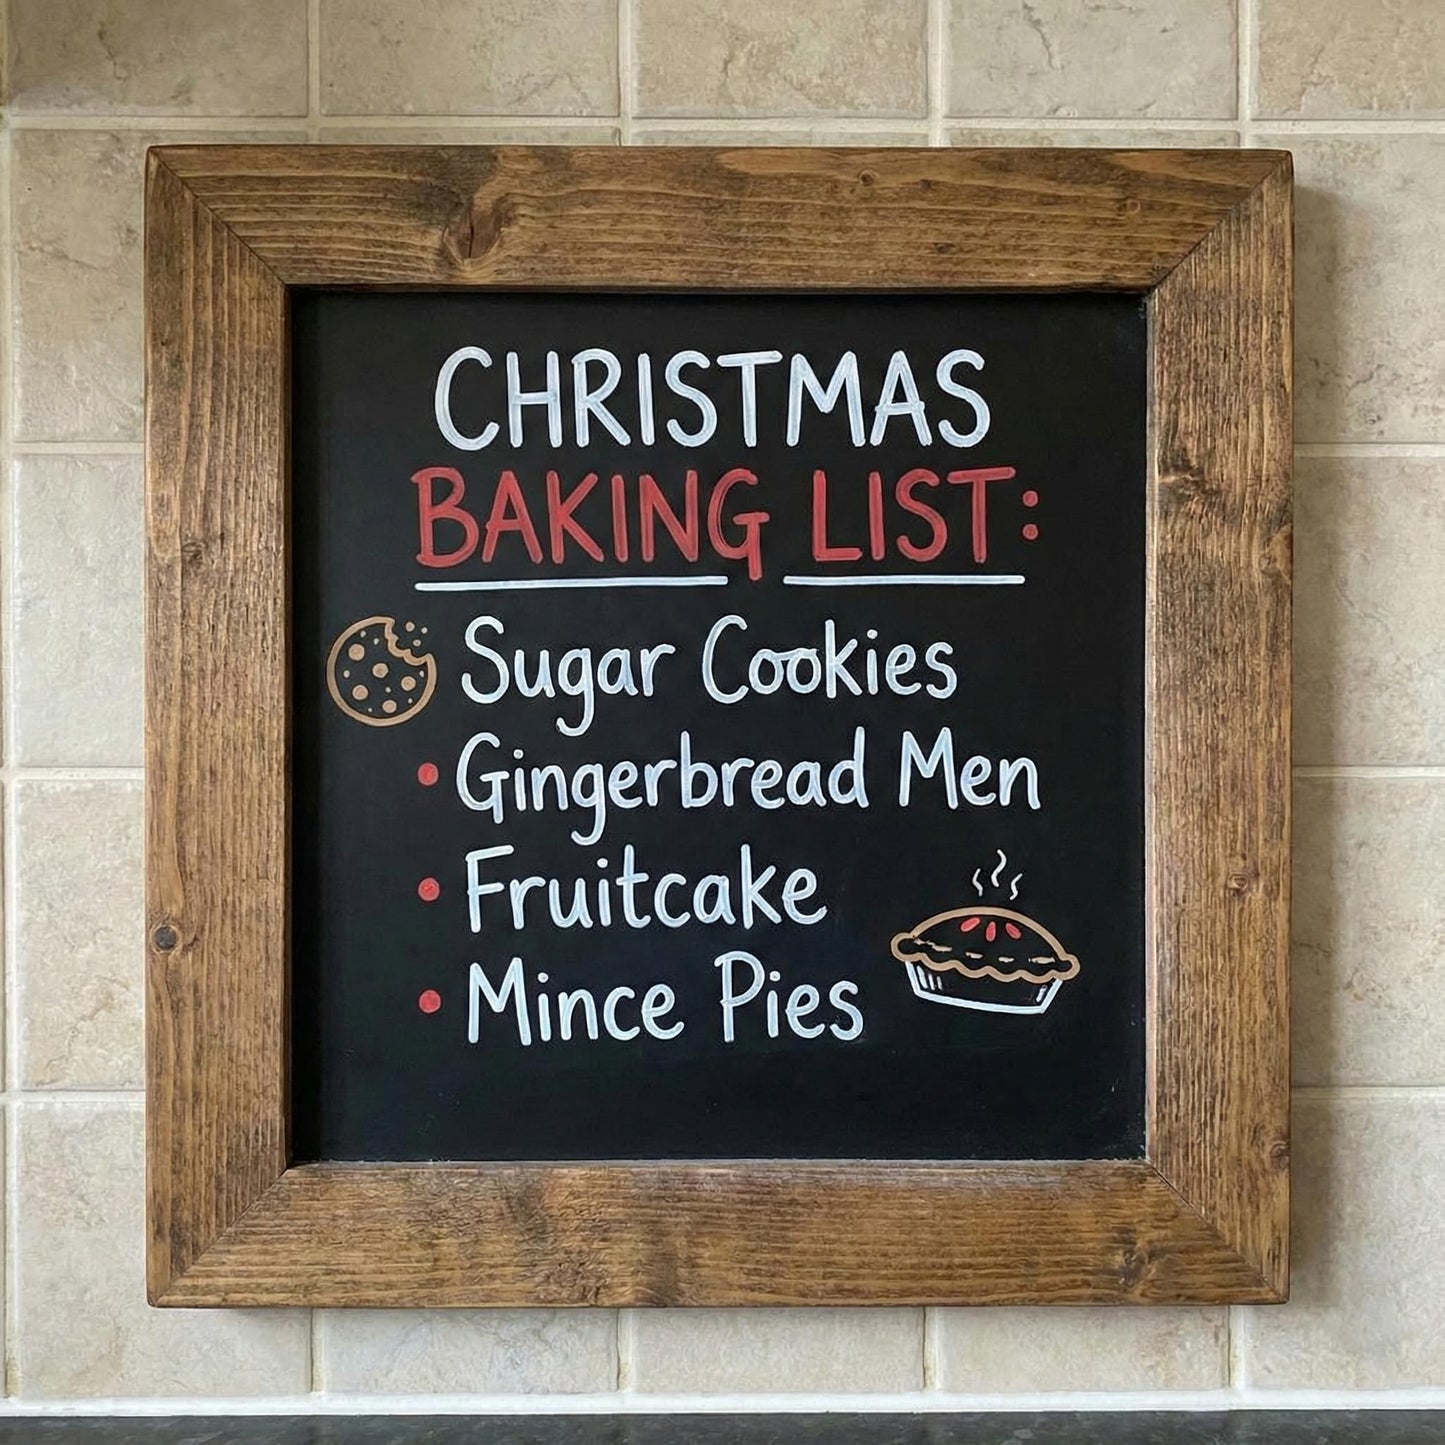 CHRISTMAS
BAKING LIST:
Sugar Cookies
• Gingerbread Men
• Fruitcake
• Mince Pies